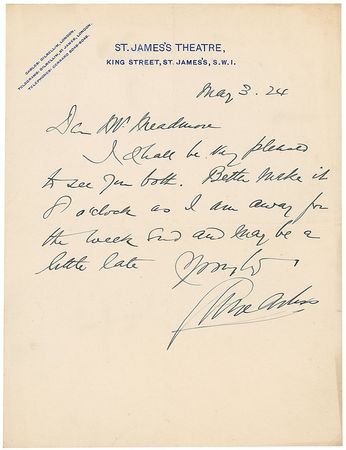 CABLES: GILBELLIM, LONDON.
TELEGRAMS: GILBELLIM, ST JAMES, LONDON.
TELEPHONES: GERRARD
ST. JAMES'S THEATRE,
KING STREET, ST. JAMES'S, S.W.1.
May 3. 24
Dear Mr Meadmore
I shall be very pleased
to see you both. Better make it
8 o'clock as I am away for
the week end and may be a
little late Yours truly
Arliss